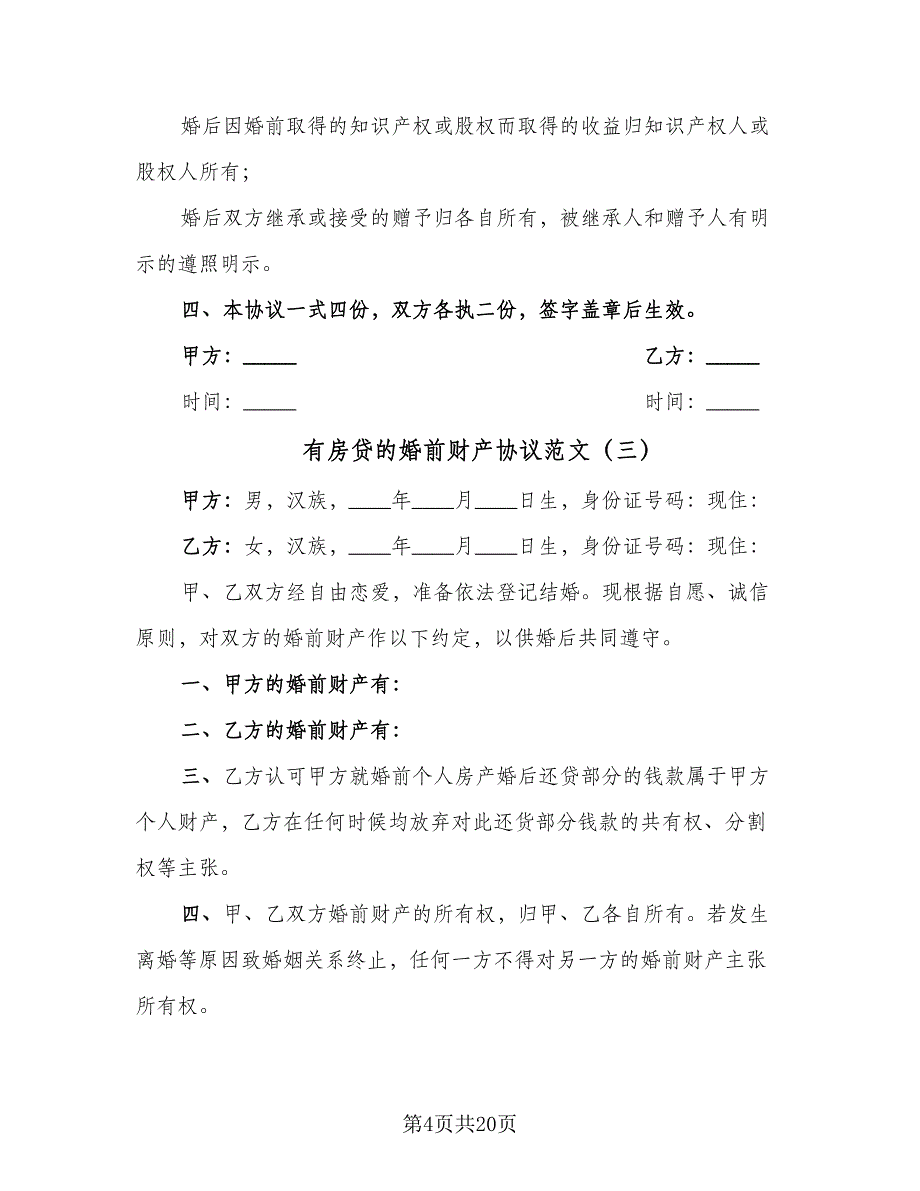 婚后因婚前取得的知识产权或股权而取得的收益归知识产权人或
股权人所有；
婚后双方继承或接受的赠予归各自所有，被继承人和赠予人有明
示的遵照明示。
四、本协议一式四份，双方各执二份，签字盖章后生效。
甲方：_____ 乙方：_____
时间：_____ 时间：_____
有房贷的婚前财产协议范文（三）
甲方：男，汉族，____年____月____日生，身份证号码：现住：
乙方：女，汉族，____年____月____日生，身份证号码：现住：
甲、乙双方经自由恋爱，准备依法登记结婚。现根据自愿、诚信
原则，对双方的婚前财产作以下约定，以供婚后共同遵守。
一、甲方的婚前财产有：
二、乙方的婚前财产有：
三、乙方认可甲方就婚前个人房产婚后还贷部分的钱款属于甲方
个人财产，乙方在任何时候均放弃对此还货部分钱款的共有权、分割
权等主张。
四、甲、乙双方婚前财产的所有权，归甲、乙各自所有。若发生
离婚等原因致婚姻关系终止，任何一方不得对另一方的婚前财产主张
所有权。
第4页共20页